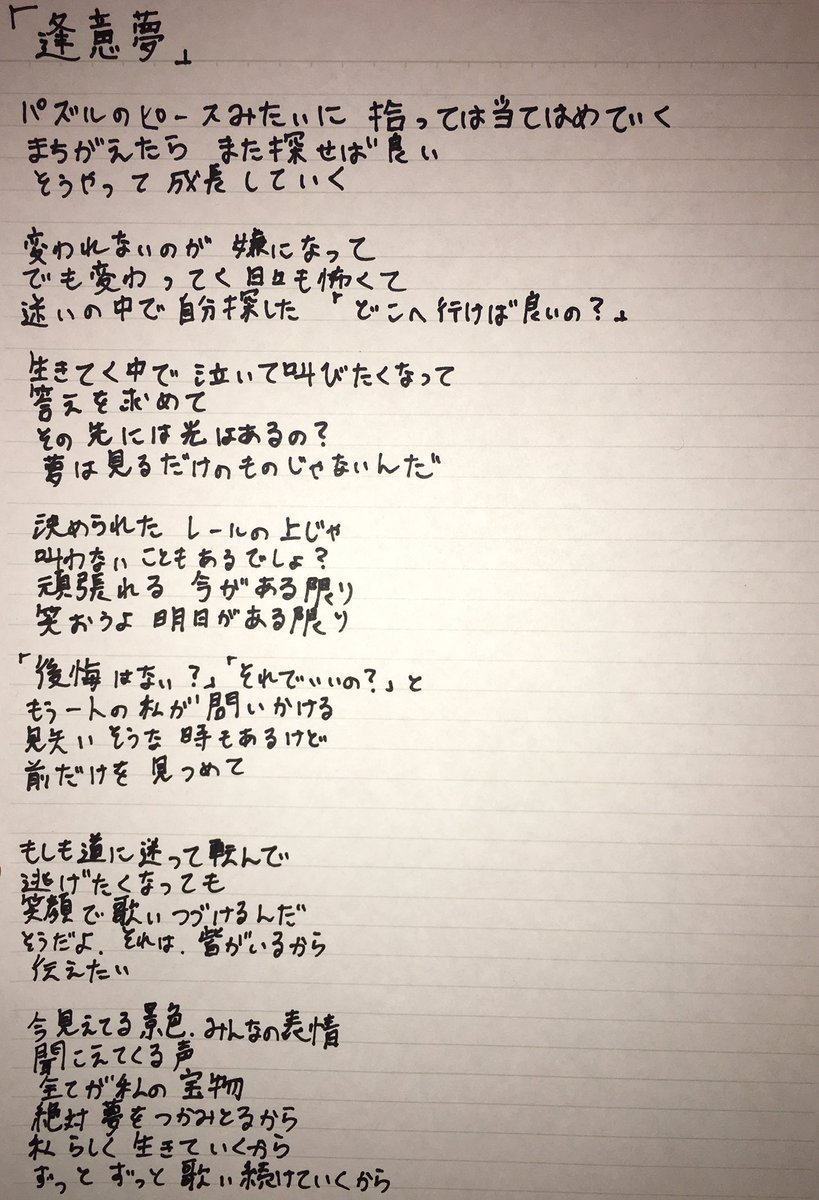 「逢意夢」
パズルのピースみたいに 拾っては当てはめていく
まちがえたら また探せば良い
そうやって 成長していく
変われないのが 嫌になって
でも変わってく日々も怖くて
迷いの中で自分探した 「どこへ行けば良いの?」
生きてく中で泣いて叫びたくなって
答えを求めて
その先には光はあるの?
夢は見るだけのものじゃないんだ
決められた レールの上じゃ
叫わない こともあるでしょ?
頑張れる 今がある限り
笑おうよ 明日がある限り
「後悔はない?」「それでいいの?」と
もう一人の私が問いかける
見失いそうな時もあるけど
前だけを見つめて
もしも道に迷って転んで
逃げたくなっても
笑顔で歌いつづけるんだ
そうだよ、それは、皆がいるから
伝えたい
今見えてる景色、みんなの表情
聞こえてくる声
全てが私の宝物
絶対夢をつかみとるから
私らしく生きていくから
ずっと ずっと 歌い続けていくから